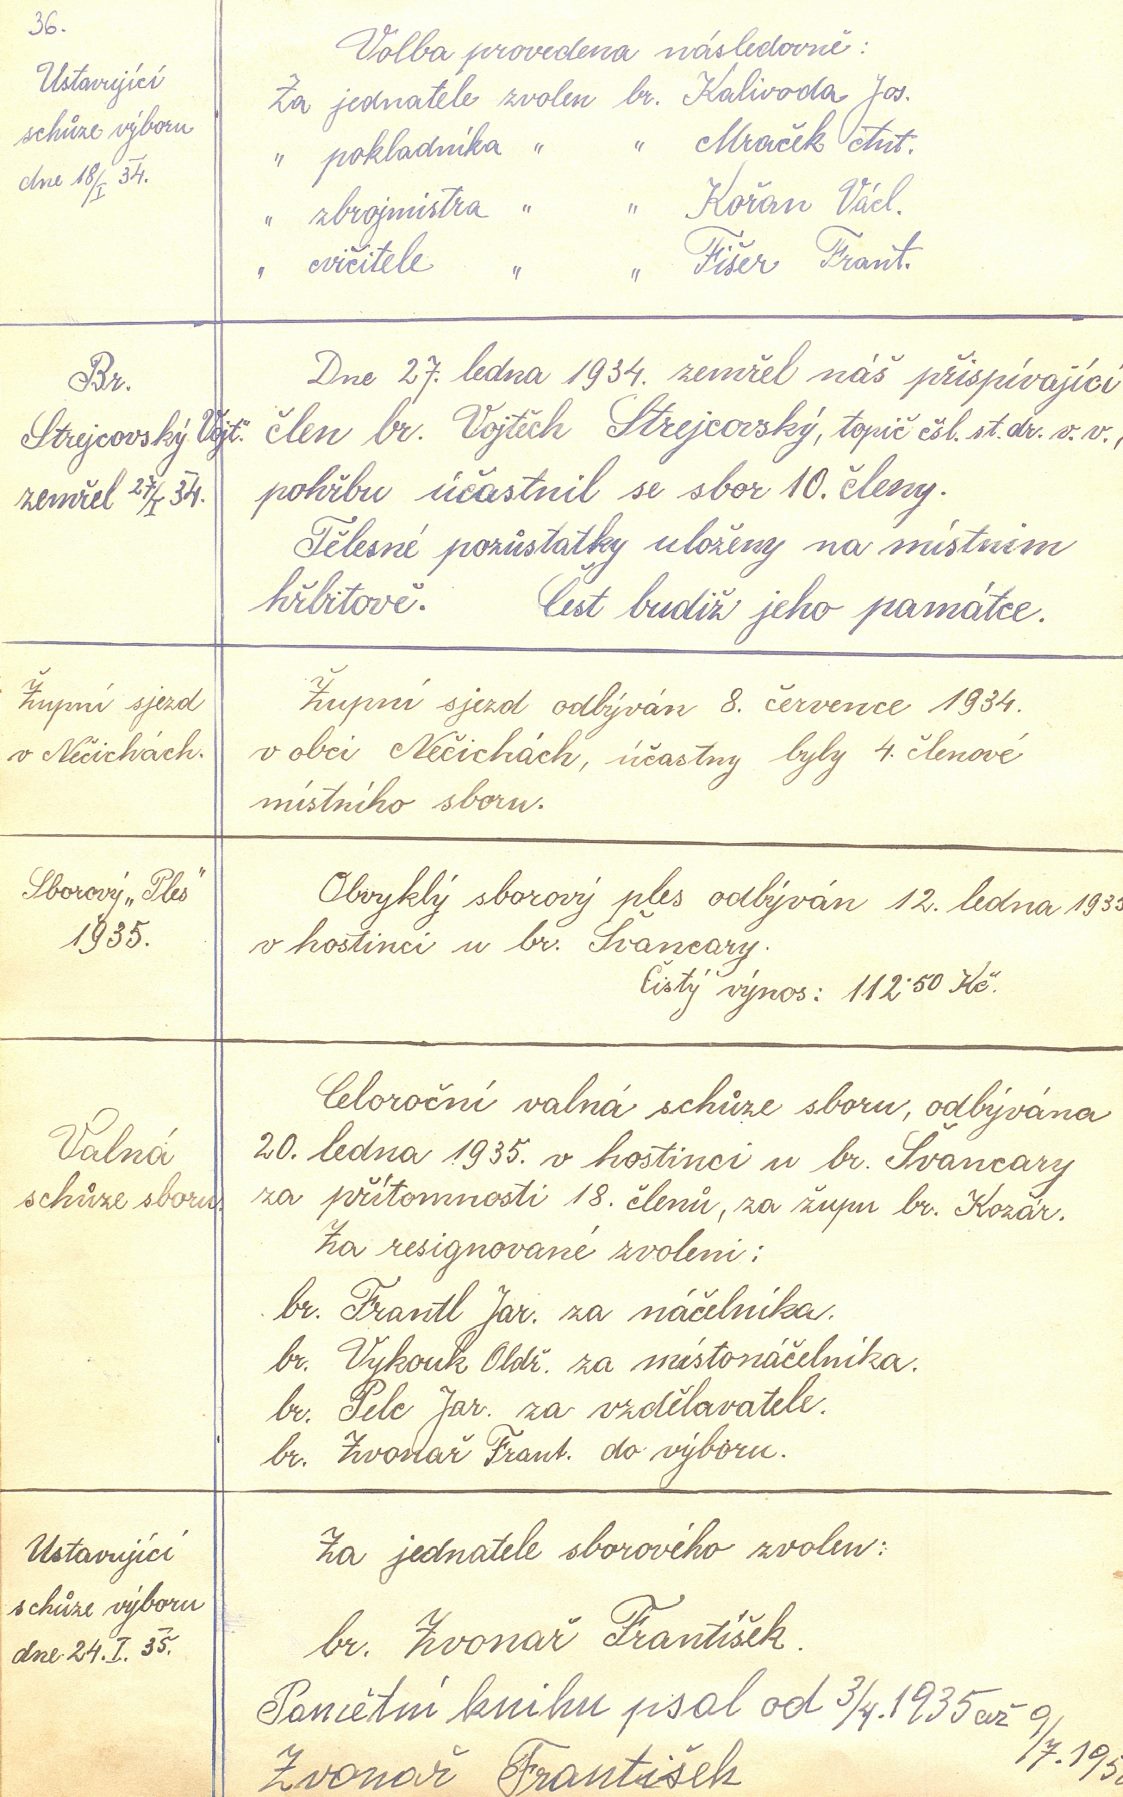 36.
Ustavující
schůze výboru
dne 18/I 34.
Volba provedena následovně:
Za jednatele zvolen br. Kalivoda Jos.
" pokladníka " " Mraček Ant.
" zbrojmistra " " Kořan Václ.
" cvičitele " " Fišer Frant.
Br.
Strejcovský Vojt.
zemřel 27/I 34.
Dne 27. ledna 1934. zemřel náš přispívající
člen br. Vojtěch Strejcovský, topič čsl. st. dr. v. v.,
pohřbu účastnil se sbor 10. členy.
Tělesné pozůstatky uloženy na místním
hřbitově. Čest budiž jeho památce.
Župní sjezd
v Nečichách.
Župní sjezd odbýván 8. července 1934.
v obci Nečichách, účastny byly 4. členové
místního sboru.
Sborový „Ples"
1935.
Obvyklý sborový ples odbýván 12. ledna 1935
v hostinci u br. Švancary.
Čistý výnos: 112·50 Kč.
Valná
schůze sboru.
Celoroční valná schůze sboru, odbývána
20. ledna 1935. v hostinci u br. Švancary
za přítomnosti 18. členů, za župu br. Kozár.
Za resignované zvoleni:
br. Frantl Jar. za náčelníka.
br. Vykouk Oldř. za místonáčelníka.
br. Pelc Jar. za vzdělavatele.
br. Zvonař Frant. do výboru.
Ustavující
schůze výboru
dne 24. I. 35.
Za jednatele sborového zvolen:
br. Zvonař František.
Pamětní knihu psal od 3/4. 1935 až 9/7. 195
Zvonař František